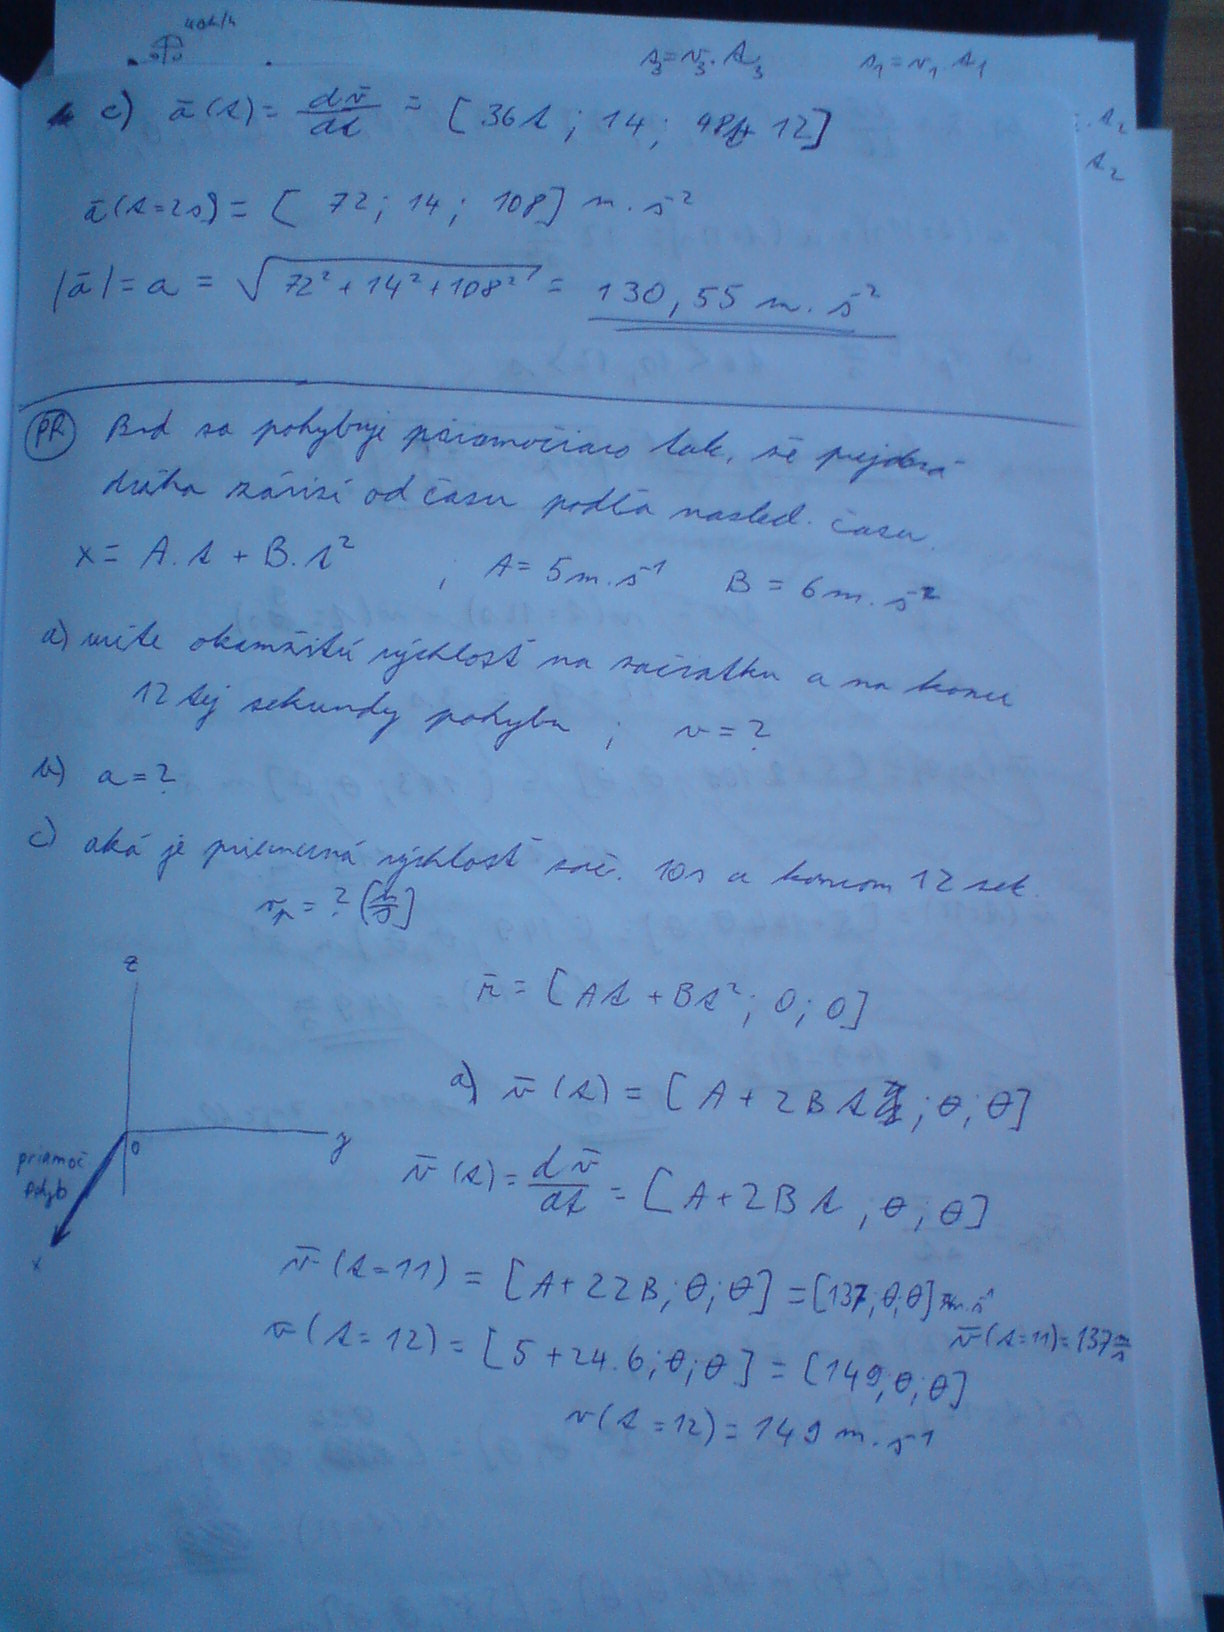 40k/h
s₃=v₃.t₃ s₁=v₁ t₁
t₂
t₂
c) a̅(t)= dv̅/dt = [36t; 14; 48t+12]
a̅(t=2s)= [72; 14; 108] m.s⁻²
|a̅|=a = √72²+14²+108² = 130,55 m.s⁻²
PR Bod sa pohybuje priamočiaro tak, že prejdená
dráha závisí od času podľa nasled. času.
x= A.t + B.t² ; A=5m.s⁻¹ B=6m.s⁻²
a) určte okamžitú rýchlosť na začiatku a na konci
12tej sekundy pohybu ; v=?
b) a=?
c) aká je priemerná rýchlosť zač. 10s a koncom 12 sek.
vₚ=?
z
r̅=[At+Bt²; 0; 0]
a) v̅(t)=[A+2Bt; 0; 0]
0 y
priamoč
pohyb
x
v̅(t)= dv̅/dt =[A+2Bt, 0, 0]
v̅(t=11)=[A+22B; 0; 0]=[137; 0; 0] m.s⁻¹
v̅(t=11)=137 m/s
v(t=12)=[5+24.6; 0; 0]=[149; 0; 0]
v(t=12)=149 m.s⁻¹